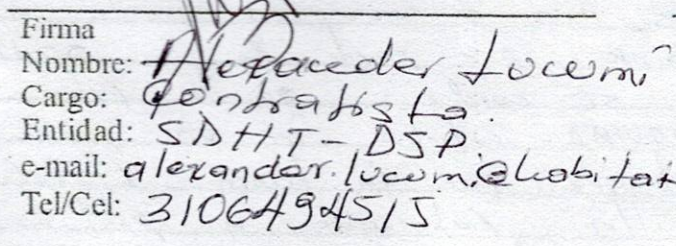 Firma
Nombre: Alexander Lucumi
Cargo: Contratista.
Entidad: SDHT-DSP
e-mail: alexander.lucumi@habitat
Tel/Cel: 3106494515